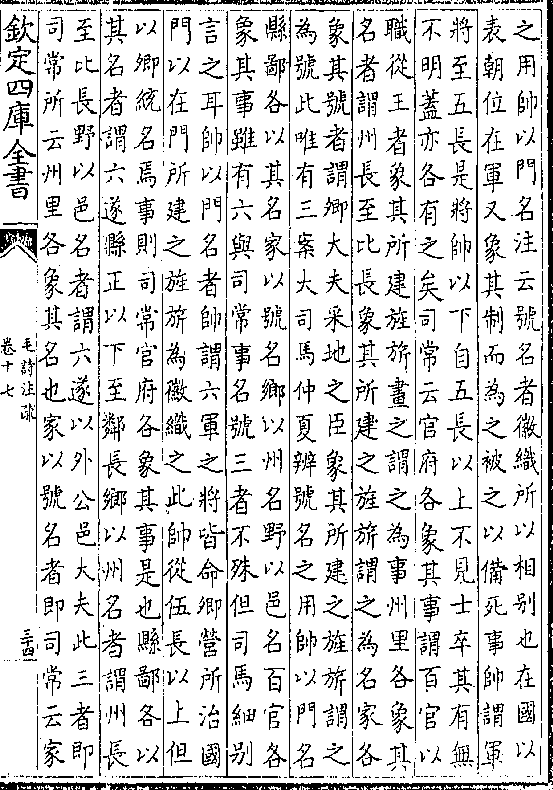 之用帥以門名注云號名者徽織所以相别也在國以
表朝位在軍又象其制而為之被之以備死事帥謂軍
將至五長是將帥以下自五長以上不見士卒其有無
不明蓋亦各有之矣司常云官府各象其事謂百官以
職從王者象其所建旌旂畫之謂之為事州里各象其
名者謂州長至比長象其所建之旌旂謂之為名家各
象其號者謂卿大夫采地之臣象其所建之旌旂謂之
為號此唯有三案大司馬仲夏辨號名之用帥以門名
縣鄙各以其名家以號名鄉以州名野以邑名百官各
象其事雖有六與司常事名號三者不殊但司馬細别
言之耳帥以門名者帥謂六軍之將皆命卿營所治國
門以在門所建之旌旂為徽織之此帥從伍長以上但
以卿統名焉事則司常官府各象其事是也縣鄙各以
其名者謂六遂縣正以下至鄰長鄉以州名者謂州長
至比長野以邑名者謂六遂以外公邑大夫此三者即
司常所云州里各象其名也家以號名者即司常云家
欽定四庫全書
毛詩注疏
卷十七
三十四